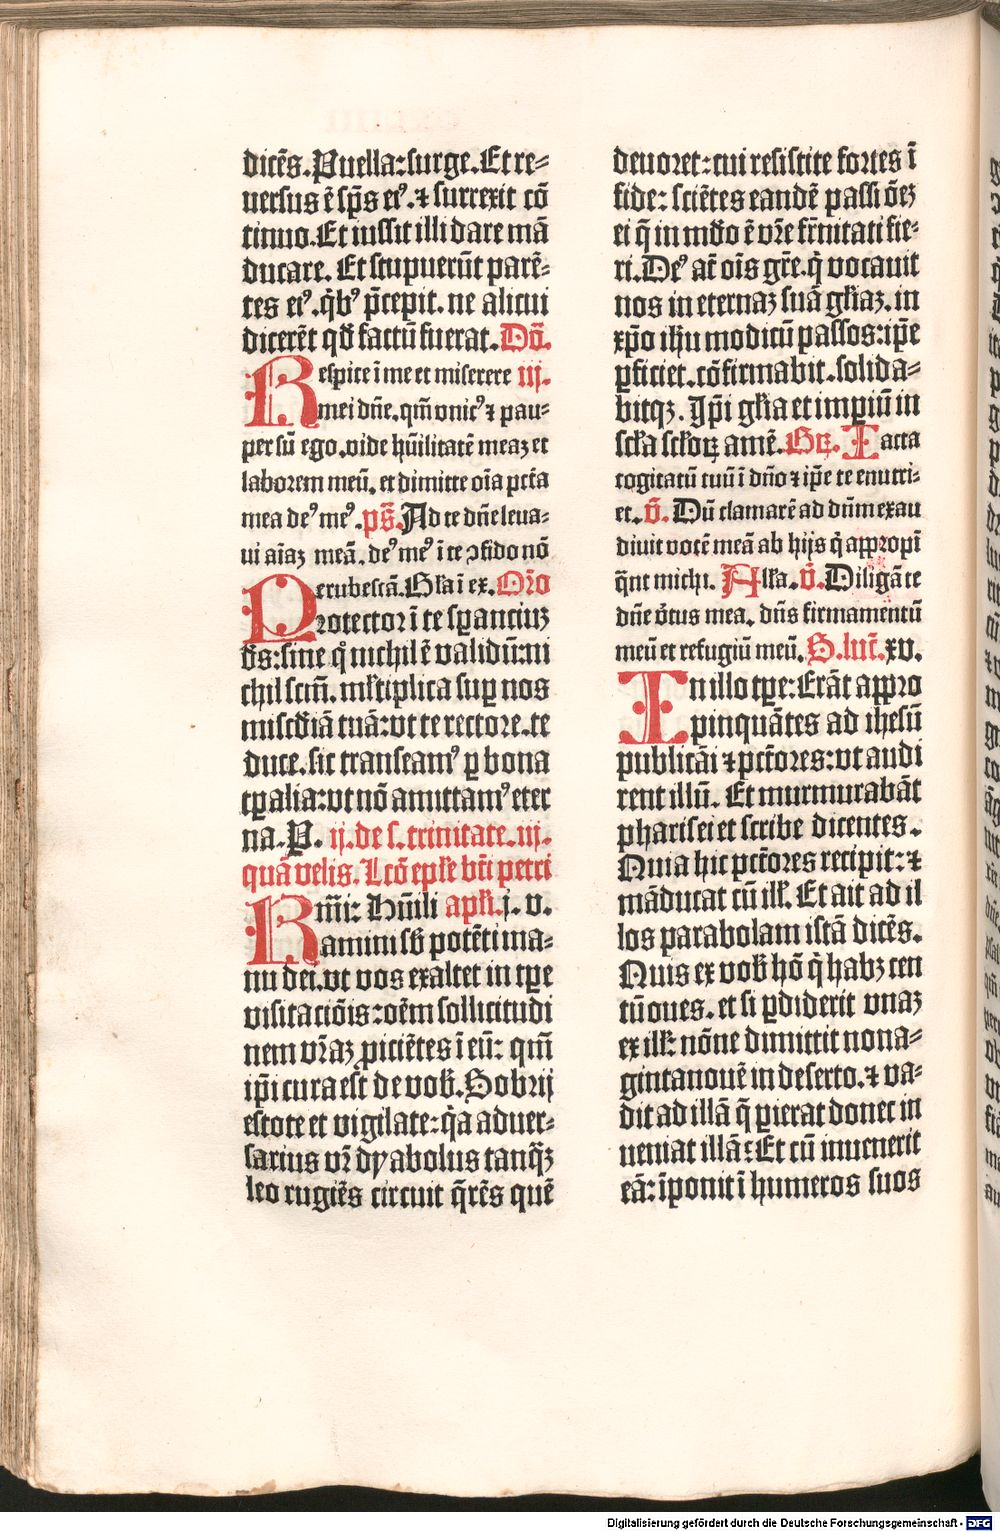 dicēs. Puella: surge. Et re-
uersus ē sp̄s eiꝰ. ⁊ surrexit cō
tinuo. Et iussit illi dare mā
ducare. Et stupuerūt parē-
tes eiꝰ. q̇bꝰ p̄cepit. ne alicui
dicerēt qđ factū fuerat. Dō.
Respice ī me et miserere iij.
mei dn̄e. qm̄ vnicꝰ ⁊ pau-
per sū ego. vide hūilitatē meaꝫ et
laborem meū. et dimitte oīa pctā
mea deꝰ meꝰ. ps̄. Ad te dn̄e leua-
ui aīaꝫ meā. deꝰ meꝰ ī te ↄfido nō
erubescā. Glīa ī ex. Orō
Protector ī te sꝑantiuꝫ
đs: sine q̊ nichil ē validū: ni
chil scm̄. mł̄tiplica suꝑ nos
misc̄diā tuā: vt te rectore. te
duce. sic transeamꝰ ꝑ bona
tꝑalia: vt nō amittamꝰ eter
na. P. ij. de s. trinitate. iij.
quā velis. Lcō epłe bt̄i petri
Rm̄i: Hūili apłi. j. v.
amini sƀ potēti ma-
nu dei. vt vos exaltet in tꝑe
visitaciōis: oēm sollicitudi
nem vr̄aꝫ ꝓiciētes ī eū: qm̄
ip̄i cura est de voƀ. Sobrij
estote et vigilate: q̇a aduer-
sarius vr̄ dyabolus tanq̄ꝫ
leo rugiēs circuit q̄rēs quē
deuoret: cui resistite fortes ī
fide: sciētes eandē passiōeꝫ
ei q̄ in mđo ē vr̄e fr̄nitati fie-
ri. Deꝰ aūt oīs gr̄e. q̇ vocauit
nos in eternaꝫ suā głiaꝫ. in
xp̄o ihu modicū passos: ip̄e
ꝑficiet. cōfirmabit. solida-
bitqꝫ. Ip̄i głia et imꝑiū in
scła scłoꝝ amē. Gꝝ. Iacta
cogitatū tuū ī dn̄o ⁊ ip̄e te enutri-
et. v̄. Dū clamarē ad dn̄m exau
diuit vocē meā ab hijs q̇ appropī
q̄nt michi. Alła. v̄. Diligā te
dn̄e v̄tus mea. dn̄s firmamentū
meū et refugiū meū. S. luc̄. xv.
In illo tꝑe: Erāt appro
pinquātes ad ihesū
publicāi ⁊ pctōres: vt audi
rent illū. Et murmurabāt
pharisei et scribe dicentes.
Quia hic pctōres recipit: ⁊
māducat cū iłł. Et ait ad il
los parabolam istā dicēs.
Quis ex voƀ hō q̇ habꝫ cen
tū oues. et si ꝑdiderit vnaꝫ
ex iłł: nōne dimittit nona-
gintanouē in deserto. ⁊ va-
dit ad illā q̄ ꝑierat donec in
ueniat illā: Et cū inuenerit
eā: īponit ī humeros suos
Digitalisierung gefördert durch die Deutsche Forschungsgemeinschaft - DFG